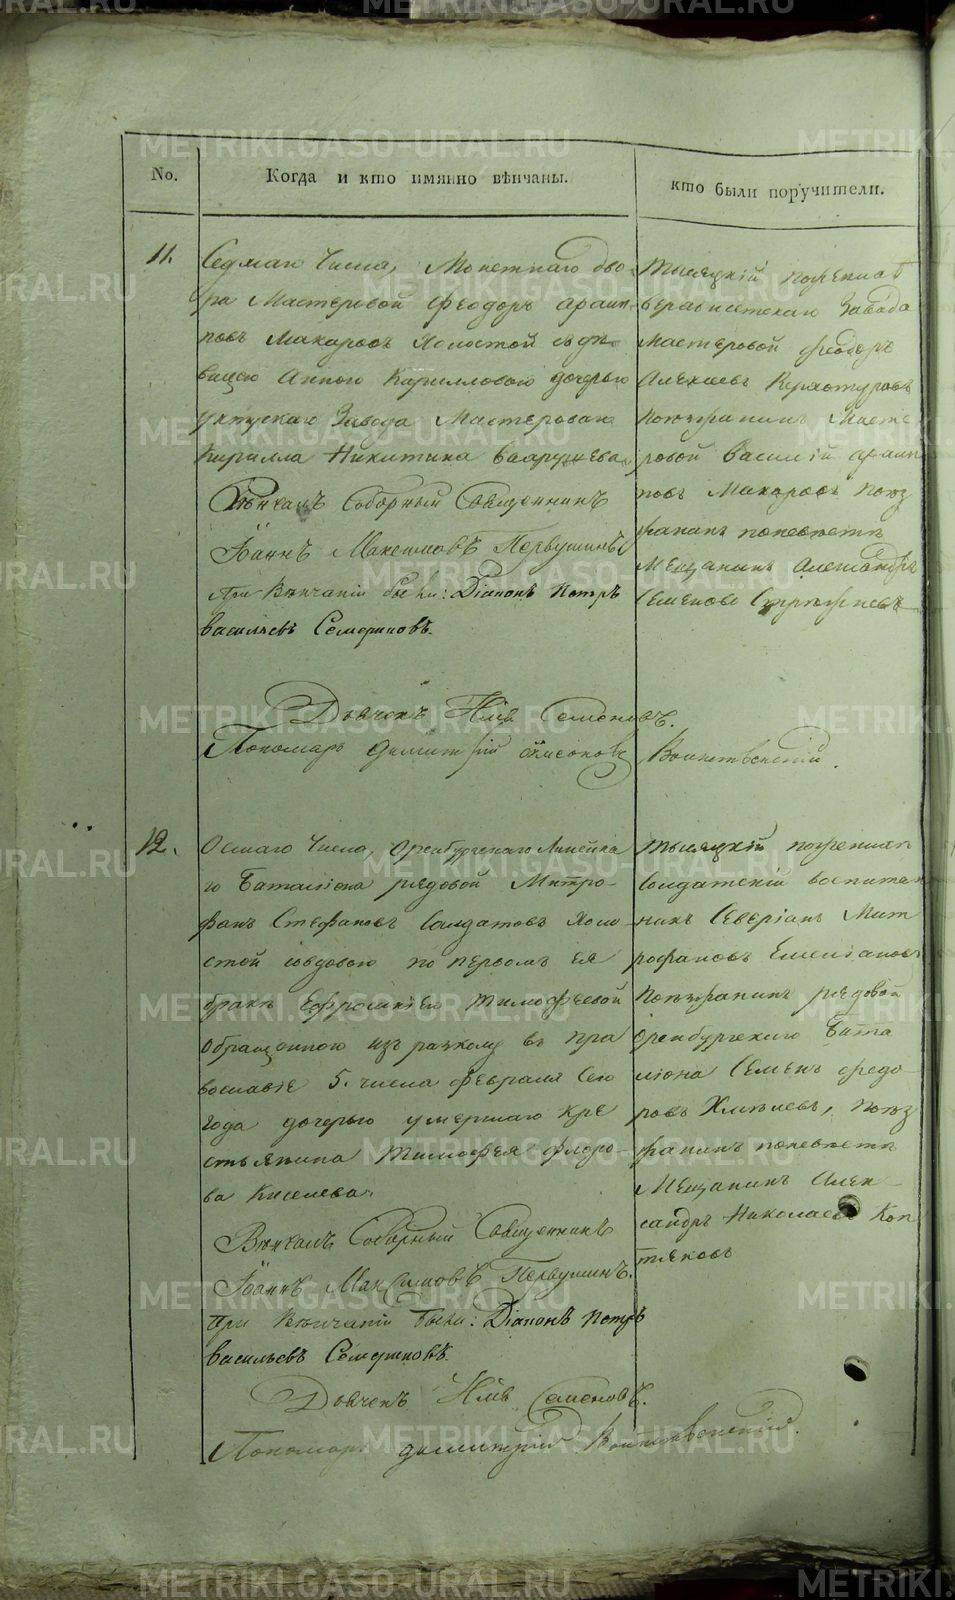 No.
Когда и кто имянно вѣнчаны.
кто были поручители.
11.
Седмаго Числа, Монетнаго дво-
ра Мастеровой Феодоръ
Макаровъ Холостой съ дѣ-
вицею Анною Кирилловою дочерью
Уктускаго Завода Мастероваго
Кирилла Никитина
Вѣнчалъ Соборный Священникъ
Іоаннъ Максимовъ Первушинъ
При Вѣнчаніи были: Діаконъ Петръ
Васильевъ
Семеновъ.
Пономарь Димитрій
Воинственскій.
Тысяцкій
Завода
Мастеровой Феодоръ
Алексеевъ Верхотуровъ
Поѣзжанинъ Масте-
ровой Василій
Макаровъ Поѣз
жанинъ
Мещанинъ Александръ
Семеновъ
12.
Осмаго Числа, Оренбургскаго Линейна
го Баталіона рядовой Митро-
фанъ Стефановъ Солдатовъ Холо
стой совдовою по первомъ ея
бракѣ Ефросиніею Тимофѣевой
Обращенною изъ расколу въ пра
вославіе 5. числа февраля Сего
года дочерью умершаго кре
стьянина Тимофея Федоро-
ва Киселева.
Вѣнчалъ Соборный Священникъ
Іоаннъ Максимовъ Первушинъ.
При Вѣнчаніи были: Діаконъ Петръ
Васильевъ
Семеновъ.
Пономарь Димитрій Воинственскій.
Тысяцкій
Солдатскій воспитан
никъ Северіанъ Мит
рофановъ Емельяновъ
Поѣзжанинъ рядовой
Оренбургскаго Бата
ліона Семенъ Федо-
ровъ Хмѣлевъ, Поѣз
жанинъ
Мещанинъ Алек-
сандръ Николаевъ Коп
тяковъ
METRIKI.GASO-URAL.RU